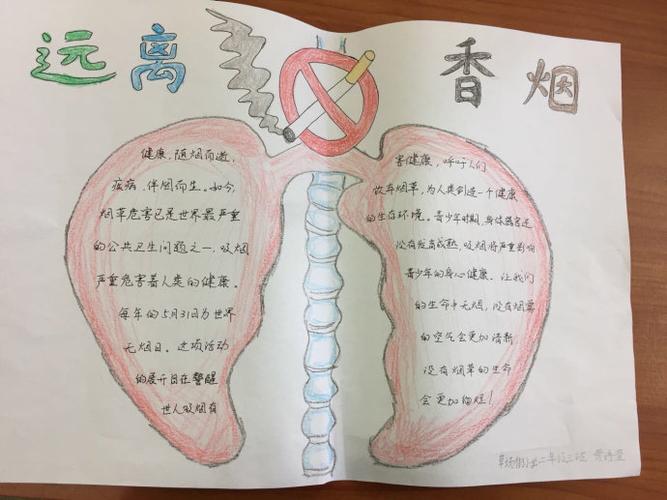 远离 香烟
健康，随烟而逝，
疾病，伴烟而生。如今，
烟草危害已是世界最严重
的公共卫生问题之一，吸烟
严重危害着人类的健康。
每年的5月31日为世界
无烟日。这项活动
的展开旨在警醒
世人吸烟有
害健康，呼吁人们
放弃烟草，为人类创造一个健康
的生存环境。青少年时期，身体器官还
没有发育成熟，吸烟将严重影响
青少年的身心健康。让我们
的生命中无烟，没有烟雾
的空气会更加清新
没有烟草的生命
会更加灿烂！
二年级三班